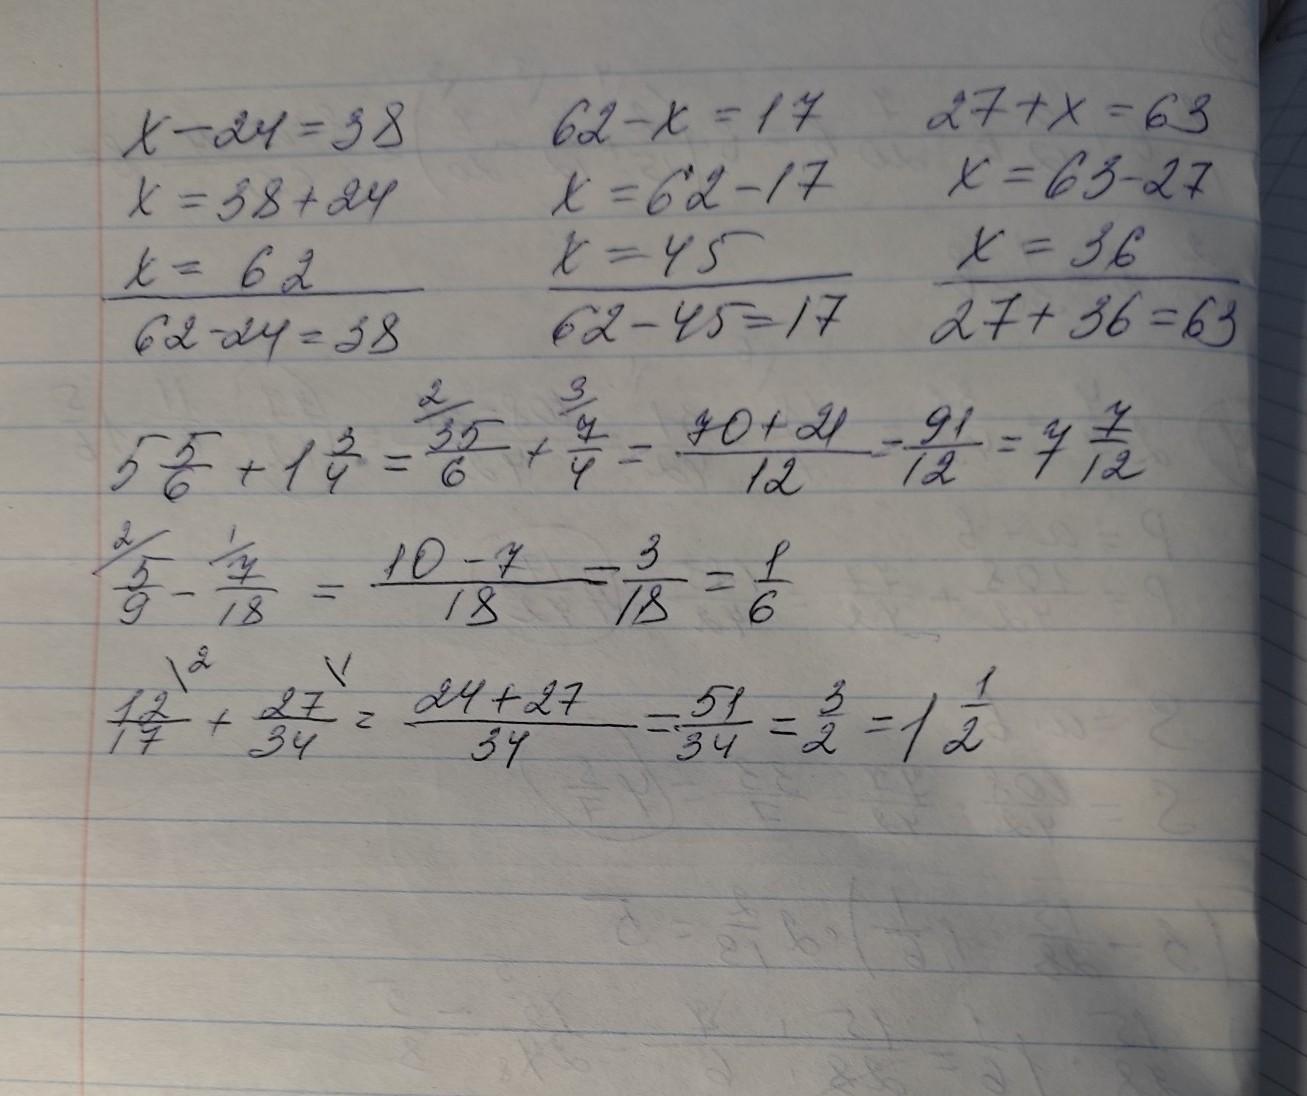 x - 24 = 38    62 - x = 17    27 + x = 63
x = 38 + 24    x = 62 - 17    x = 63 - 27
x = 62    x = 45    x = 36
62 - 24 = 38    62 - 45 = 17    27 + 36 = 63
5 5/6 + 1 3/4 = 2/ 35/6 + 3/ 7/4 = (70 + 21)/12 = 91/12 = 7 7/12
2/ 5/9 - 1/ 7/18 = (10 - 7)/18 = 3/18 = 1/6
12/17 \2 + 27/34 \1 = (24 + 27)/34 = 51/34 = 3/2 = 1 1/2